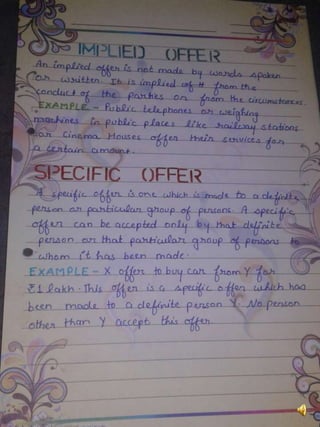 IMPLIED OFFER
An implied offer is not made by words spoken
or written. It is implied off it from the
conduct of the parties or from the circumstances.
EXAMPLE - Public telephones or weighing
machines in public places like railway stations
or Cinema Houses offer their services for
a certain amount.
SPECIFIC OFFER
A specific offer is one which is made to a definite
person or particular group of persons. A specific
offer can be accepted only by that definite
person or that particular group of persons to
whom it has been made.
EXAMPLE - X offer to buy car from Y for
₹1 lakh. This offer is a specific offer which has
been made to a definite person Y. No person
other than Y accept this offer.